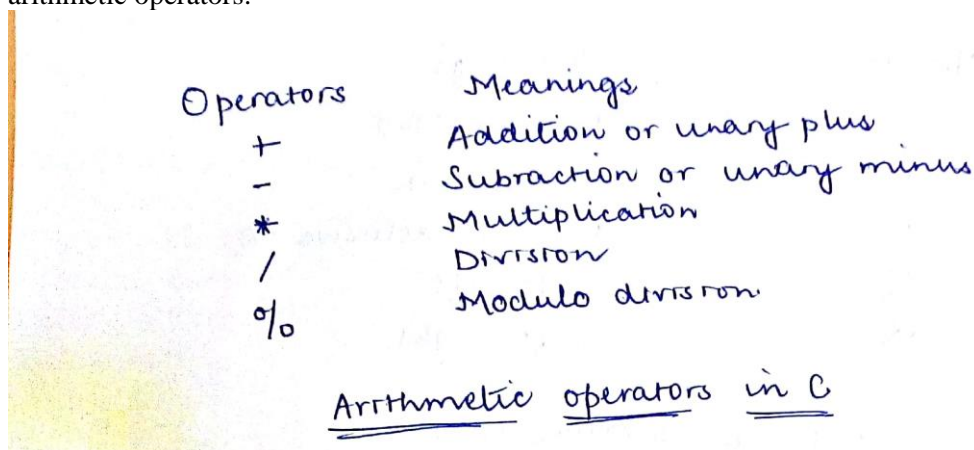 arithmetic operators.
Operators Meanings
+ Addition or unary plus
- Subraction or unary minus
* Multiplication
/ Division
% Modulo division
Arithmetic operators in C